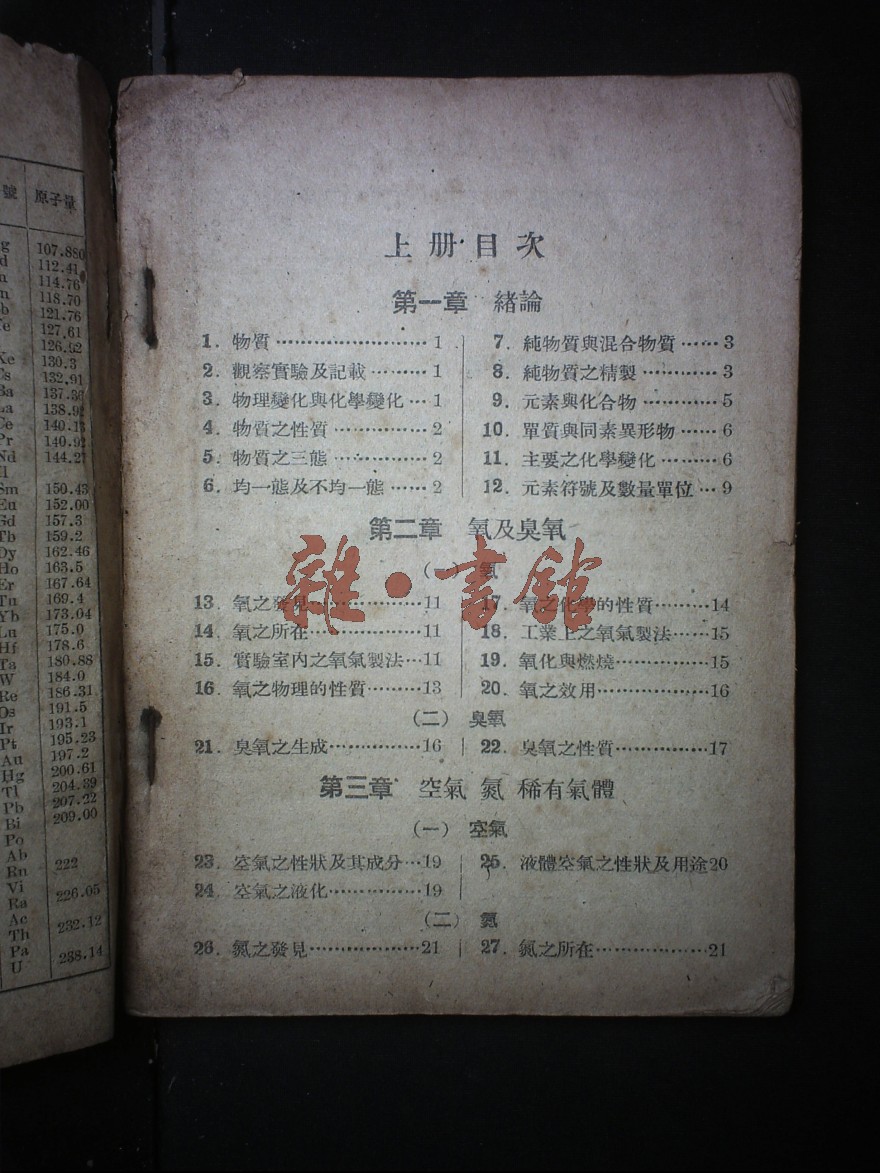 號 原子量
g 107.880
d 112.41
n 114.76
n 118.70
b 121.76
e 127.61
126.92
Xe 130.3
Cs 132.91
Ba 137.36
La 138.92
Ce 140.13
Pr 140.92
Nd 144.27
Il
Sm 150.43
Eu 152.00
Gd 157.3
Tb 159.2
Dy 162.46
Ho 163.5
Er 167.64
Tu 169.4
Yb 173.04
Lu 175.0
Hf 178.6
Ta 180.88
W 184.0
Re 186.31
Os 191.5
Ir 193.1
Pt 195.23
Au 197.2
Hg 200.61
Tl 204.39
Pb 207.22
Bi 209.00
Po
Ab
Rn 222
Vi
Ra 226.05
Ac
Th 232.12
Pa
U 238.14
上册目次
第一章 緒論
1. 物質……………………1
2. 觀察實驗及記載………1
3. 物理變化與化學變化…1
4. 物質之性質……………2
5. 物質之三態……………2
6. 均一態及不均一態……2
7. 純物質與混合物質……3
8. 純物質之精製…………3
9. 元素與化合物…………5
10. 單質與同素異形物……6
11. 主要之化學變化………6
12. 元素符號及數量單位…9
第二章 氧及臭氧
(一) 氧
13. 氧之發見………………11
14. 氧之所在………………11
15. 實驗室內之氧氣製法…11
16. 氧之物理的性質………13
17. 氧之化學的性質………14
18. 工業上之氧氣製法……15
19. 氧化與燃燒……………15
20. 氧之效用………………16
(二) 臭氧
21. 臭氧之生成……………16
22. 臭氧之性質……………17
第三章 空氣 氮 稀有氣體
(一) 空氣
23. 空氣之性狀及其成分…19
24. 空氣之液化……………19
25. 液體空氣之性狀及用途20
(二) 氮
26. 氮之發見………………21
27. 氮之所在………………21
雜·書館